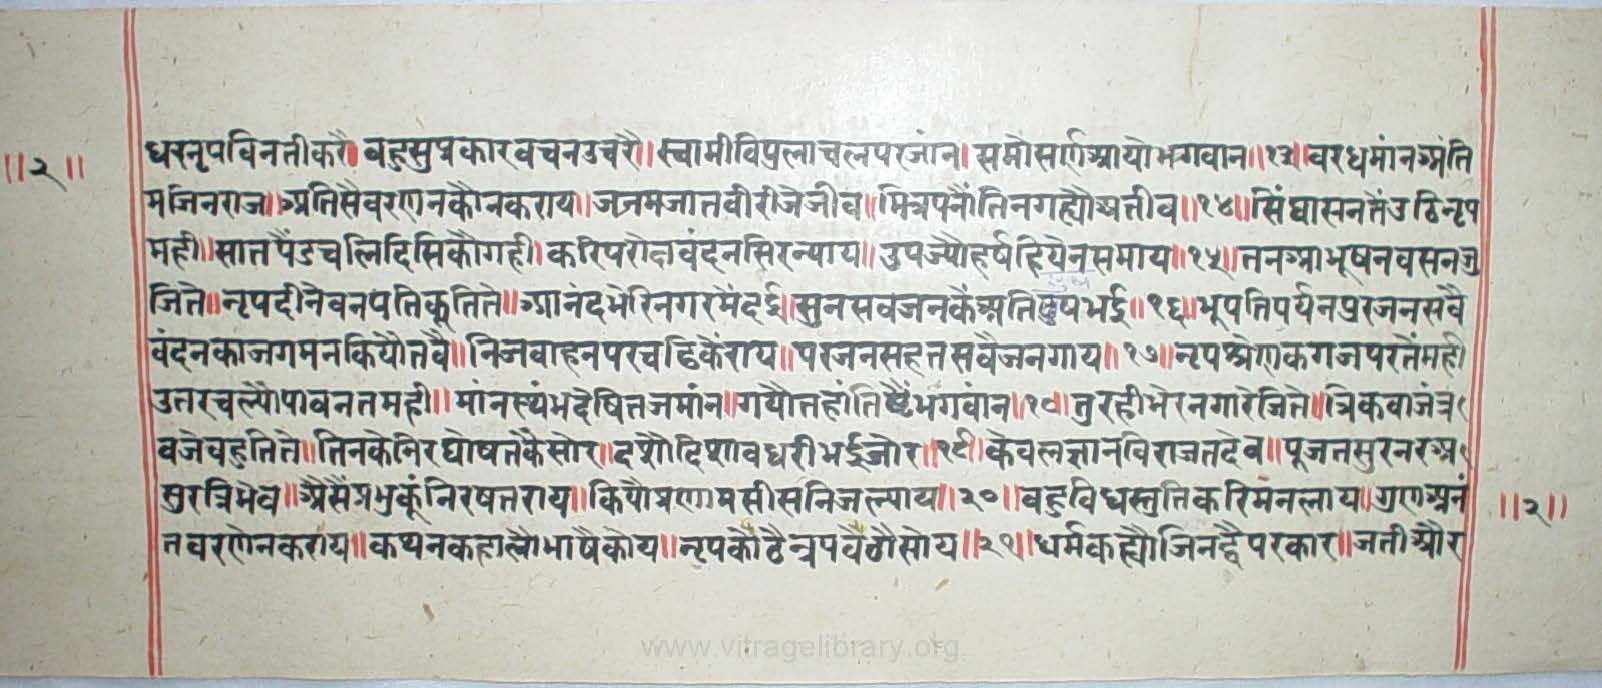 ॥२॥
धरनृपविनतीकरै॥ बहुसुप्रकारवचनउचरै॥ स्वामीविपुलाचलपरजांन॥ समौसर्णआयोभगवान॥१३॥ वरधमांनअंति
मजिनराज॥ अतिसैवरणनकौनकराय॥ जनमजातवीरीजेजीव॥ मित्रपनौंतिनगह्यौअतीव॥१४॥ सिंघासनतैंउठिनृप
मही॥ सातपैंडचलिदिसिकौगही॥ करिपरोक्षवंदनसिरन्याय॥ उपज्यौहर्षहियेनसमाय॥१५॥ तनआभूषनवसनजु
जिते॥ नृपदीनेवनपतिकूतिते॥ आनंदभेरिनगरमैंदई॥ सुनसवजनकैंअतिसुषभई॥१६॥ भूपतिपर्यनपुरजनसवै
वंदनकाजगमनकियौतवै॥ निजवाहनपरचढिकैंराय॥ परजनसहतसवैजनगाय॥१७॥ नृपश्रेणकगजपरतेंमही
उतरचल्यौपावनतमही॥ मांनस्थंभदेषितजमांन॥ गयौतहांतिष्टैंभगवांन॥१८॥ तुरहीभेरनगारेजिते॥ त्रिकवाजंत्र
वजेवहुतिते॥ तिनकेनिरघोषतकेसोर॥ दशौदिशावधरीभईजोर॥१९॥ केवलज्ञानविराजतदेव॥ पूजतसुरनरअ
सुरत्रिमेव॥ अैसैंप्रभुकूंनिरषतराय॥ कियौप्रणामसीसनिजल्याय॥२०॥ वहुविधस्तुतिकरिमनलाय॥ गुणअनं
तवरणेनकराय॥ कथनकहालौभाषैकोय॥ नृपकौठैन्रपवैठौसोय॥२१॥ धर्मकह्यौजिनद्वैपरकार॥ जतीऔर
॥२॥
www.vitragelibrary.org